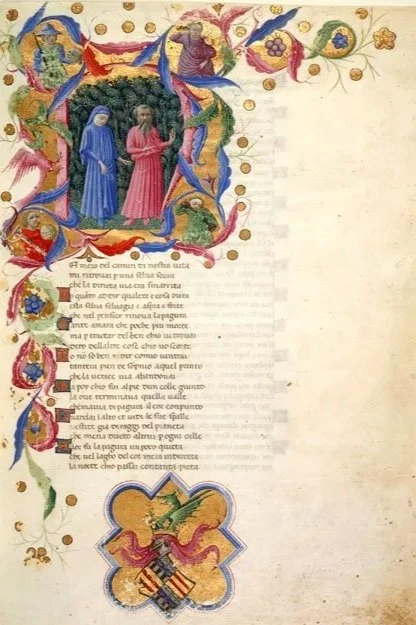 el mezo del camin di nostra uita
mi ritrouai p una selua scura
che la diricta uia era smarrita
e quato ad dir qualera e cosa dura
esta selua seluagia e aspra e forte
che nel pensier rinoua la paura
ante amara che poche piu morte
ma p tractar del ben chio ui trouai
diro dellaltre cose chio uo scorte
o no so ben redir comio uintrai
tantera pien de sopno aquel punto
che la uerace uia abandonai
a poi chio fui al pie dun colle giunto
la oue terminaua quella ualle
che mauia di paura il cor conpunto
uardai ialto et uidi le sue spalle
uestite gia de raggi del pianeta
che mena dricto altrui p ogni calle
lor fu la paura un poco queta
che nel lagho del cor mera
la nocte chio passai contanta pieta